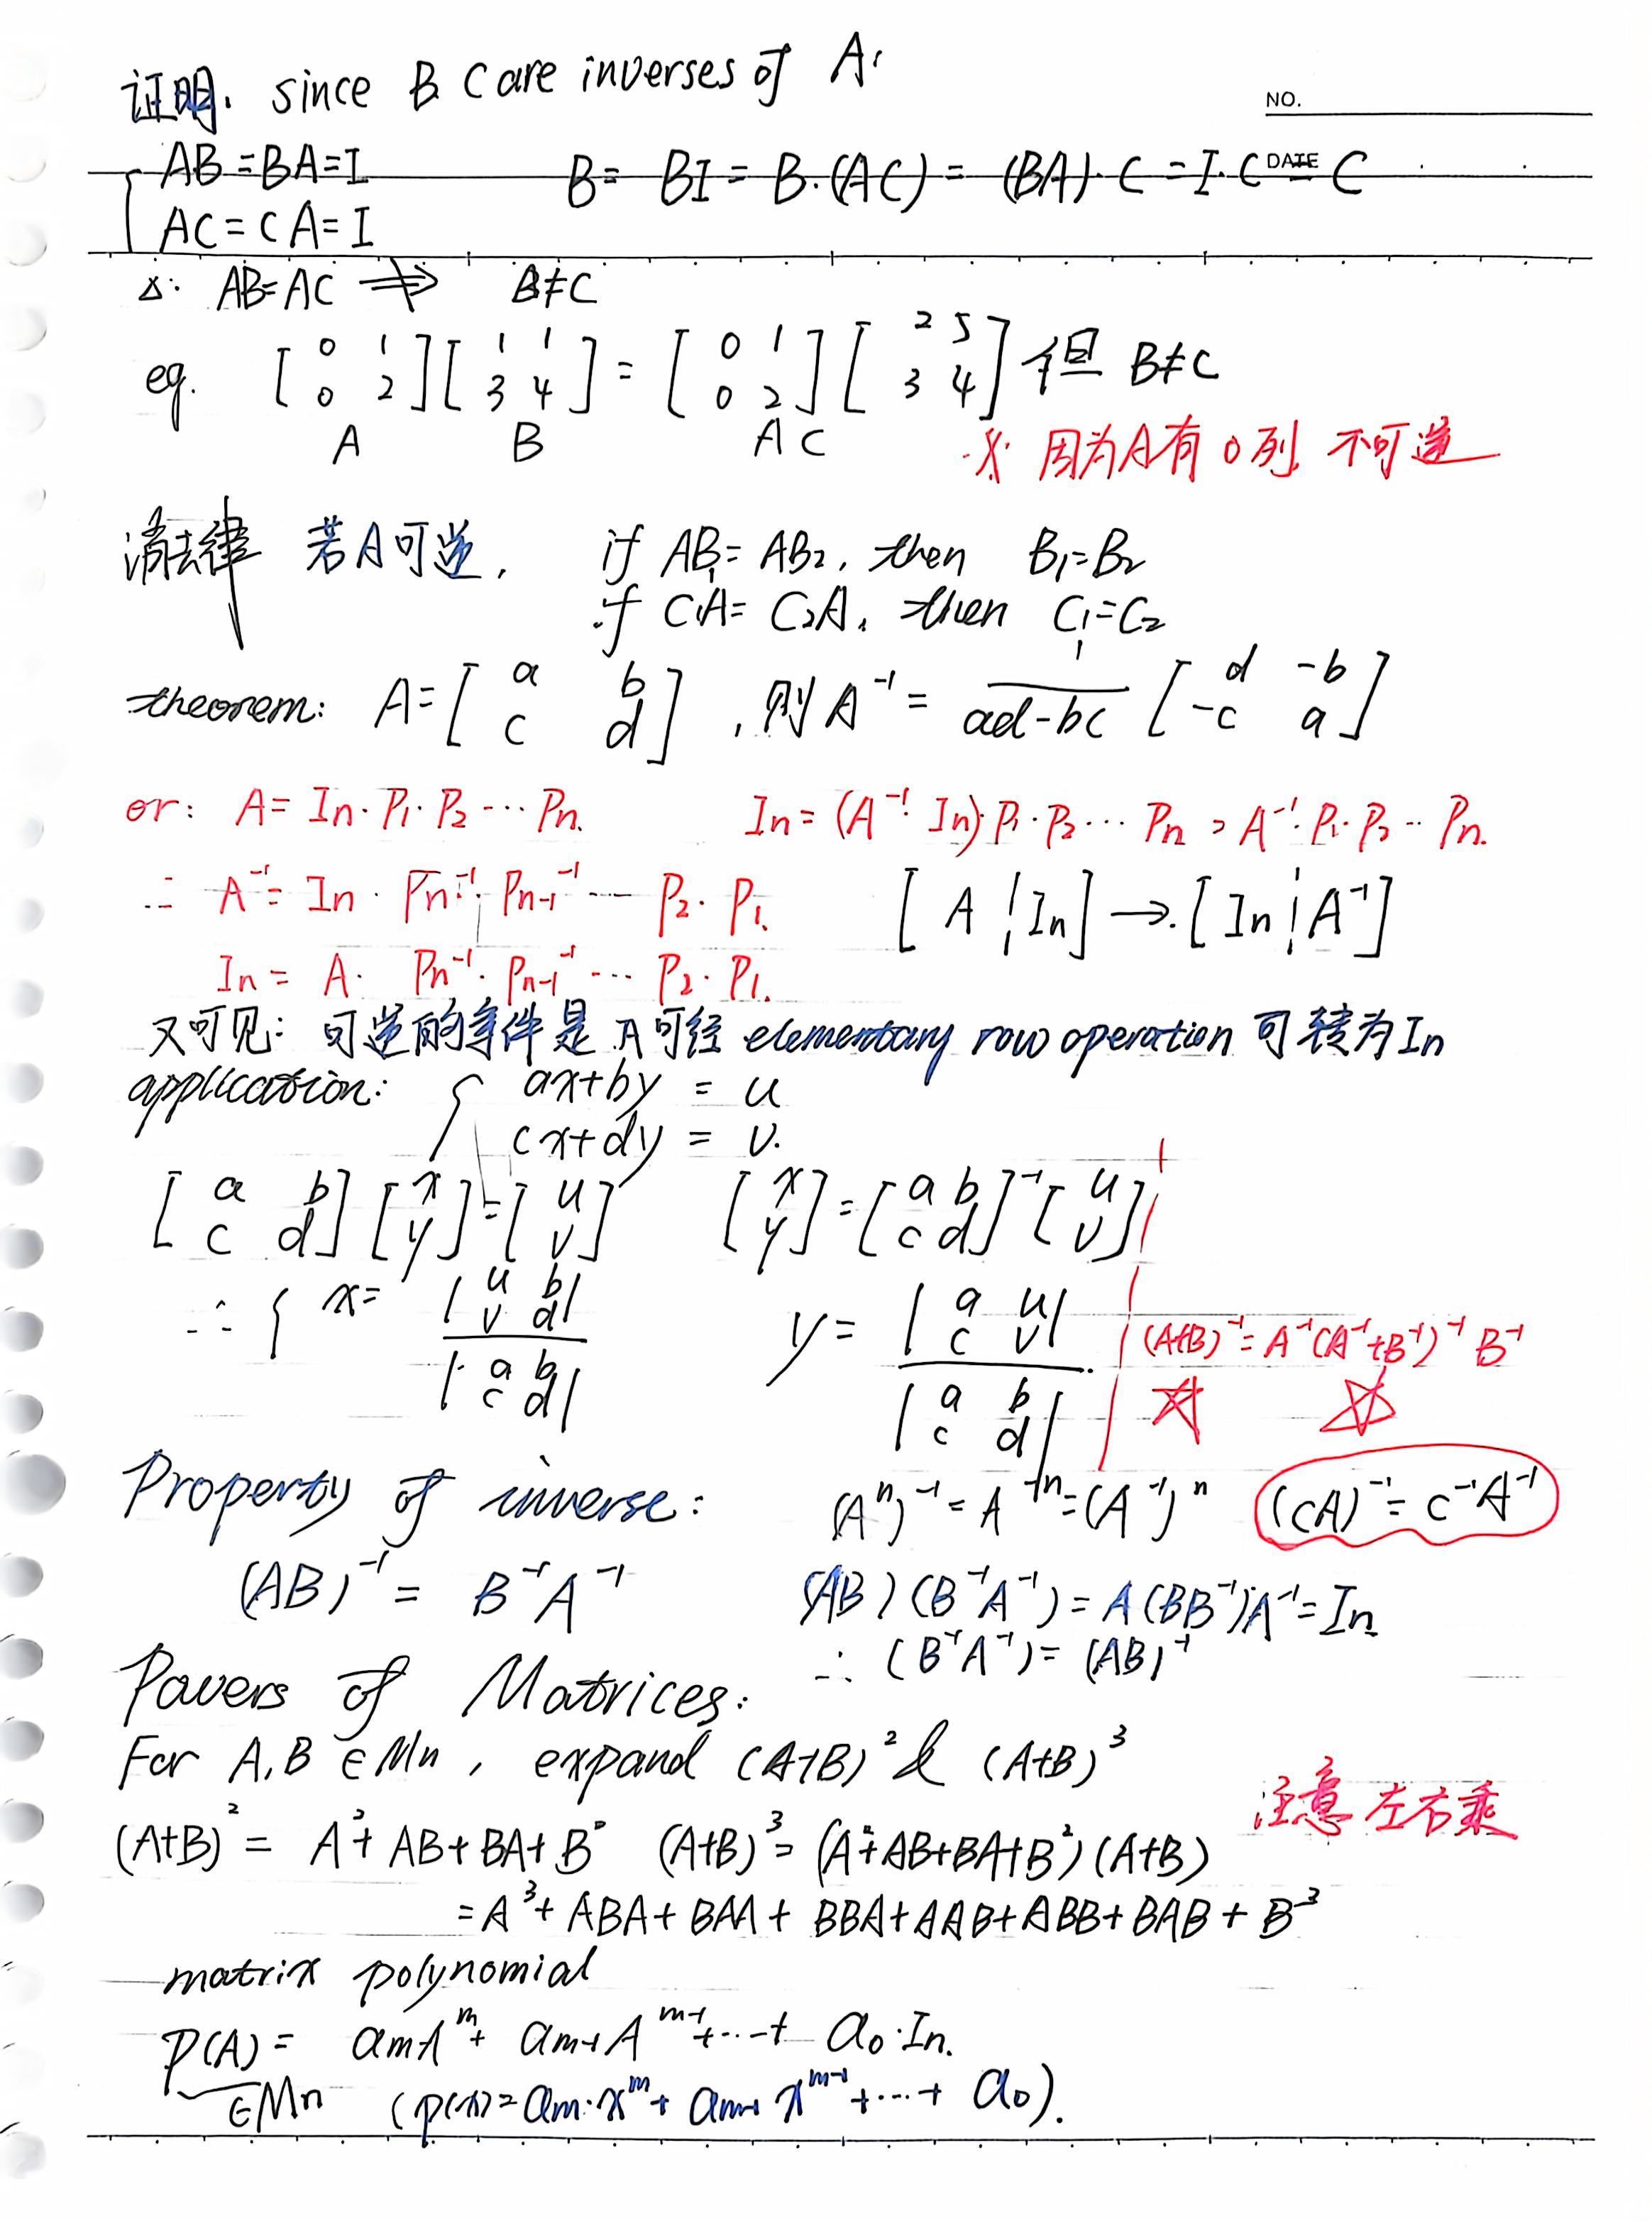 证明. since B C are inverses of A.
NO.
AB = BA = I
B = BI = B·(AC) = (BA)·C = I·C = C
DATE
AC = CA = I
△: AB=AC ⇏ B≠C
eg. [0 1; 0 2] [1 1; 3 4] = [0 1; 0 2] [2 5; 3 4] 但 B≠C
A B A C
※ 因为A有0列 不可逆
消去律 若A可逆, if AB₁=AB₂, then B₁=B₂
if C₁A=C₂A, then C₁=C₂
theorem: A=[a b; c d], 则A⁻¹ = 1/(ad-bc) [d -b; -c a]
or: A = In·P₁·P₂···Pn. In = (A⁻¹·In)·P₁·P₂···Pn = A⁻¹·P₁·P₂··Pn.
∴ A⁻¹ = In·Pn⁻¹·Pn-1⁻¹···P₂·P₁. [A ¦ In] → [In ¦ A⁻¹]
In = A·Pn⁻¹·Pn-1⁻¹···P₂·P₁.
又可见: 可逆的条件是A可经 elementary row operation 可转为In
application: { ax+by = u
cx+dy = v.
[a b; c d] [x; y] = [u; v] [x; y] = [a b; c d]⁻¹ [u; v]
∴ { x = |u b; v d| / |a b; c d| y = |a u; c v| / |a b; c d|
(A+B)⁻¹ = A⁻¹(A⁻¹+B⁻¹)⁻¹B⁻¹
Property of inverse: (Aⁿ)⁻¹ = A⁻ⁿ = (A⁻¹)ⁿ (cA)⁻¹ = c⁻¹A⁻¹
(AB)⁻¹ = B⁻¹A⁻¹ (AB)(B⁻¹A⁻¹) = A(BB⁻¹)A⁻¹ = In
∴ (B⁻¹A⁻¹) = (AB)⁻¹
Powers of Matrices:
For A,B ∈ Mn, expand (A+B)² & (A+B)³
注意 左右乘
(A+B)² = A²+AB+BA+B² (A+B)³ = (A²+AB+BA+B²)(A+B)
= A³+ABA+BAA+BBA+AAB+ABB+BAB+B³
matrix polynomial
P(A) = amAᵐ + am-1Aᵐ⁻¹+···+ a₀·In.
∈Mn (p(x) = am·xᵐ + am-1 xᵐ⁻¹+···+ a₀).